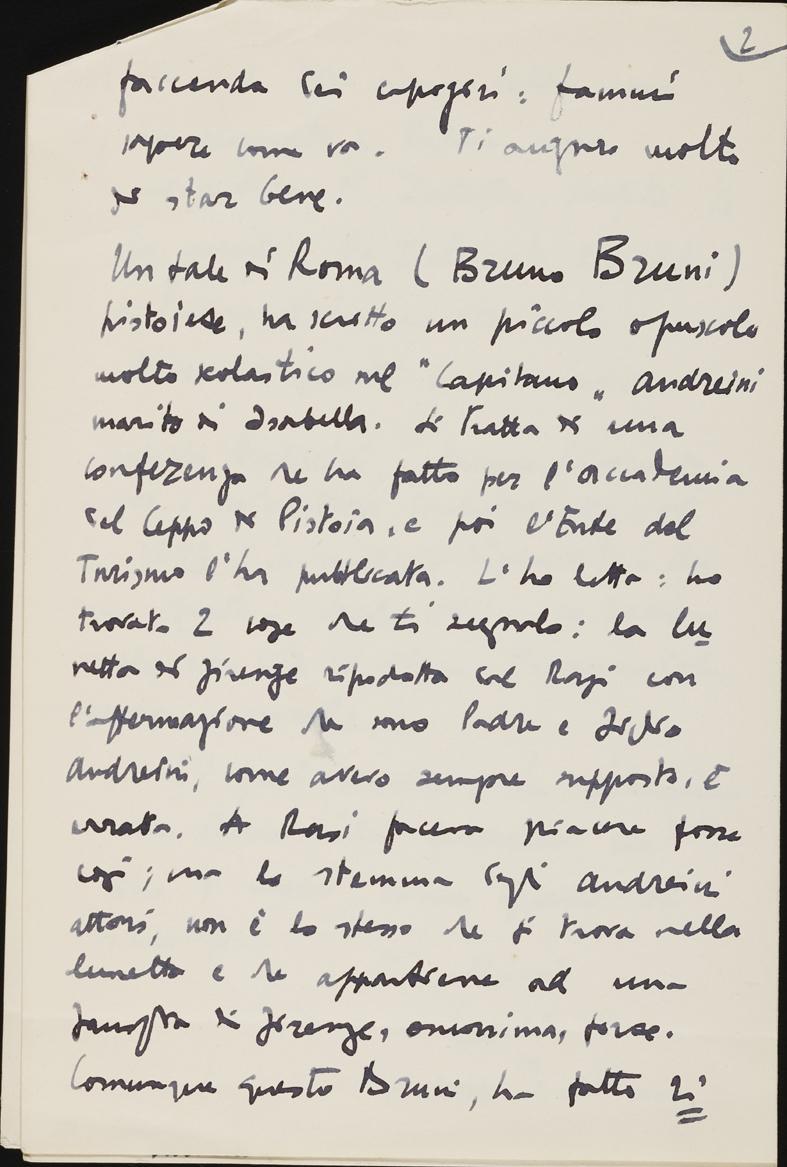 2
faccenda dei capogiri: fammi
sapere come va. Ti auguro molto
di star bene.
Un tale di Roma (Bruno Bruni)
pistoiese, ha scritto un piccolo opuscolo
molto scolastico sul "Capitano" Andreini
marito di Isabella. Si tratta di una
conferenza che ha fatto per l'accademia
del Ceppo di Pistoia, e poi l'Ente del
Turismo l'ha pubblicata. L'ho letta: ho
trovato 2 cose che ti segnalo: la lu
netta di Firenze ripodotta dal Rasi con
l'affermazione che sono Padre e Figlio
Andreini, come avevo sempre supposto, è
errata. A Rasi faceva piacere forse
così; ma lo stemma degli Andreini
attori, non è lo stesso che si trova nella
lunetta e che appartiene ad una
famiglia di Firenze, omonima, forse.
Comunque questo Bruni, ha fatto ri